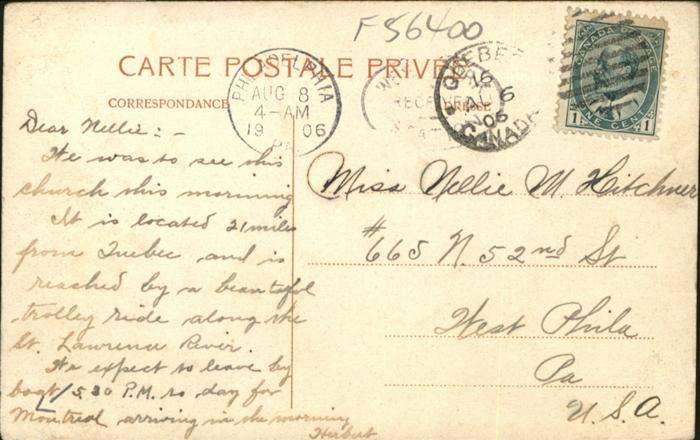 F56400
CARTE POSTALE PRIVÉE
CORRESPONDANCE
PHILADELPHIA
AUG 8
4-AM
1906
PA
REC
QUEBEC
AU 6
06
CANADA
CANADA POSTAGE
1 ONE CENT 1
Dear Nellie:-
We was to see this
church this morning
It is located 21 miles
from Quebec and is
reached by a beautiful
trolley ride along the
St. Lawrence River.
We expect to leave by
boat / 5.30 P.M. to-day for
Montreal arriving in the morning
Herbert
Miss Nellie M. Hitchner
#665 N. 52nd St
West Phila
Pa
U.S.A.